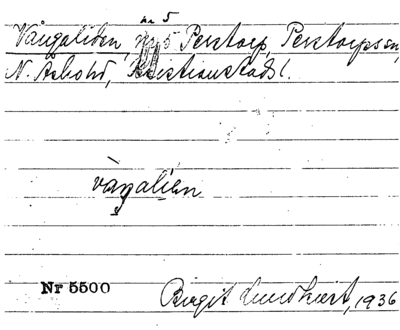 nr 5
Vångaliden, nr 5 Perstorp, Perstorps sn,
N. Åsbohd, Kristianstads l.
vàŋalíən
Nr 5500
Birgit Lundkvist, 1936